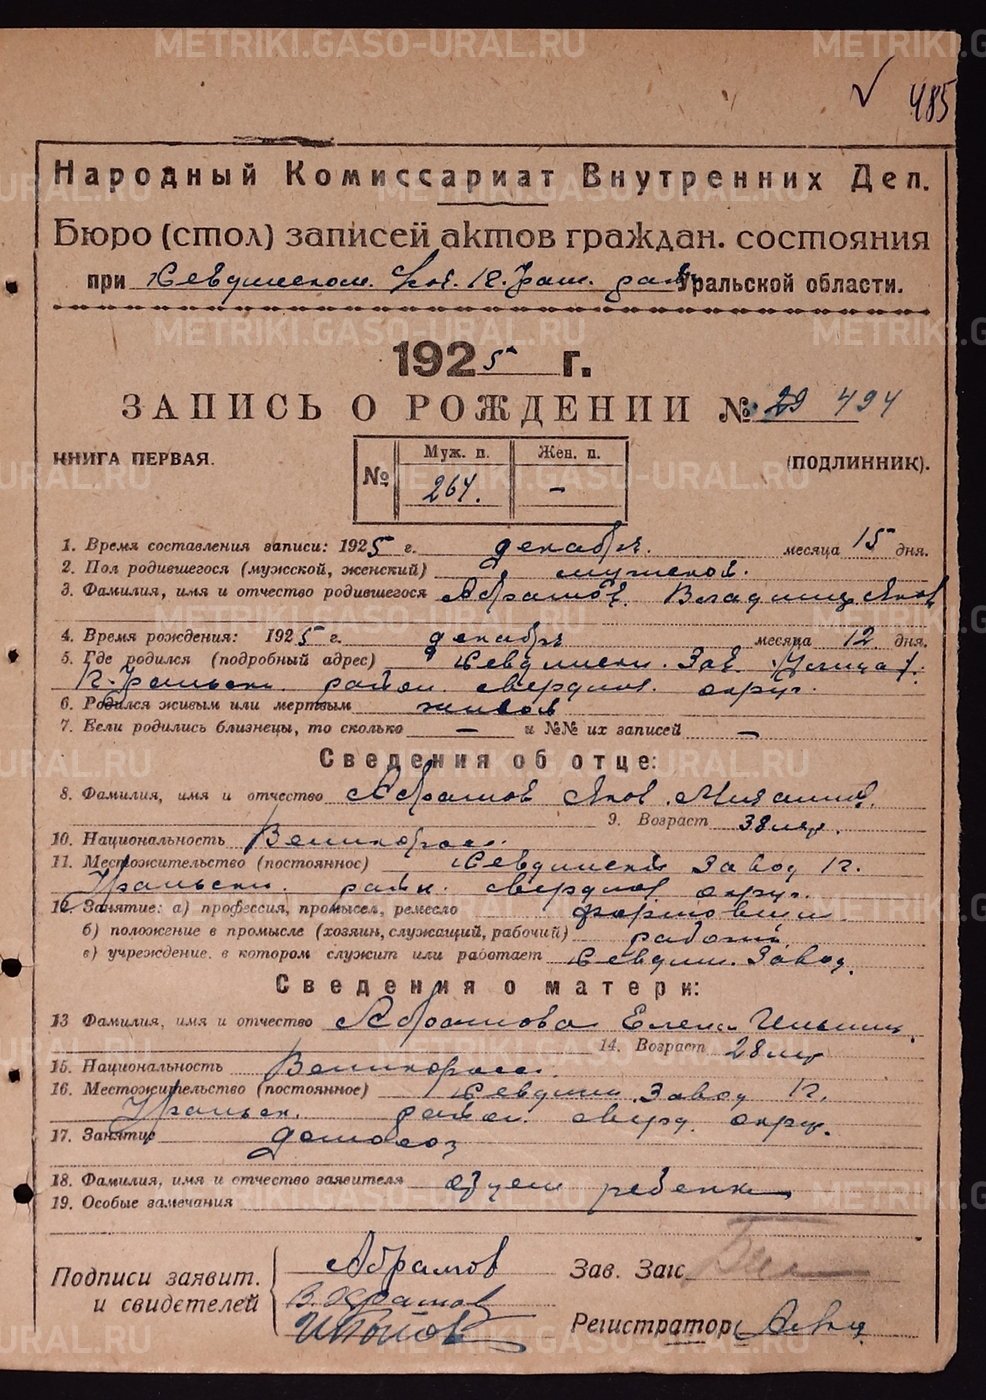 METRIKI.GASO-URAL.RU
485
Народный Комиссариат Внутренних Дел.
Бюро (стол) записей актов граждан. состояния
при Уральской области.
1925 г.
ЗАПИСЬ О РОЖДЕНИИ № 29 494
КНИГА ПЕРВАЯ.
(ПОДЛИННИК).
№ Муж. п. Жен. п.
264. —
1. Время составления записи: 1925 г. декабря. месяца 15 дня.
2. Пол родившегося (мужской, женский) мужской.
3. Фамилия, имя и отчество родившегося Абрамов Владимир Яков
4. Время рождения: 1925 г. декабря месяца 12 дня.
5. Где родился (подробный адрес) Зав.
Уральск. район. свердлов. округ.
6. Родился живым или мертвым живой
7. Если родились близнецы, то сколько — и №№ их записей —
Сведения об отце:
8. Фамилия, имя и отчество Абрамов Яков
9. Возраст 38 лет.
10. Национальность Великоросс.
11. Местожительство (постоянное) Завод Н.
Уральск. район. свердлов. округ.
12. Занятие: а) профессия, промысел, ремесло формовщик
б) положение в промысле (хозяин, служащий, рабочий) рабочий.
в) учреждение, в котором служит или работает Завод.
Сведения о матери:
13 Фамилия, имя и отчество Абрамова Елена Ильинич.
14. Возраст 28 лет
15. Национальность Великоросс.
16. Местожительство (постоянное) Завод Н.
Уральск. район. сверд. округ.
17. Занятие домохоз
18. Фамилия, имя и отчество заявителя отцом ребенка
19. Особые замечания
Подписи заявит. и свидетелей
Абрамов
Зав. Загс
Регистратор